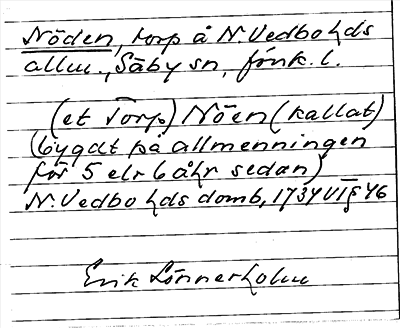 Nöden, torp å N. Vedbo hds
allm., Säby sn, Jönk. l.
(et Torp) Nöen (kallat)
(bygdt på allmenningen
för 5 elr 6 åhr sedan)
N. Vedbo hds domb, 1734 VI § 46
Erik Lönnerholm